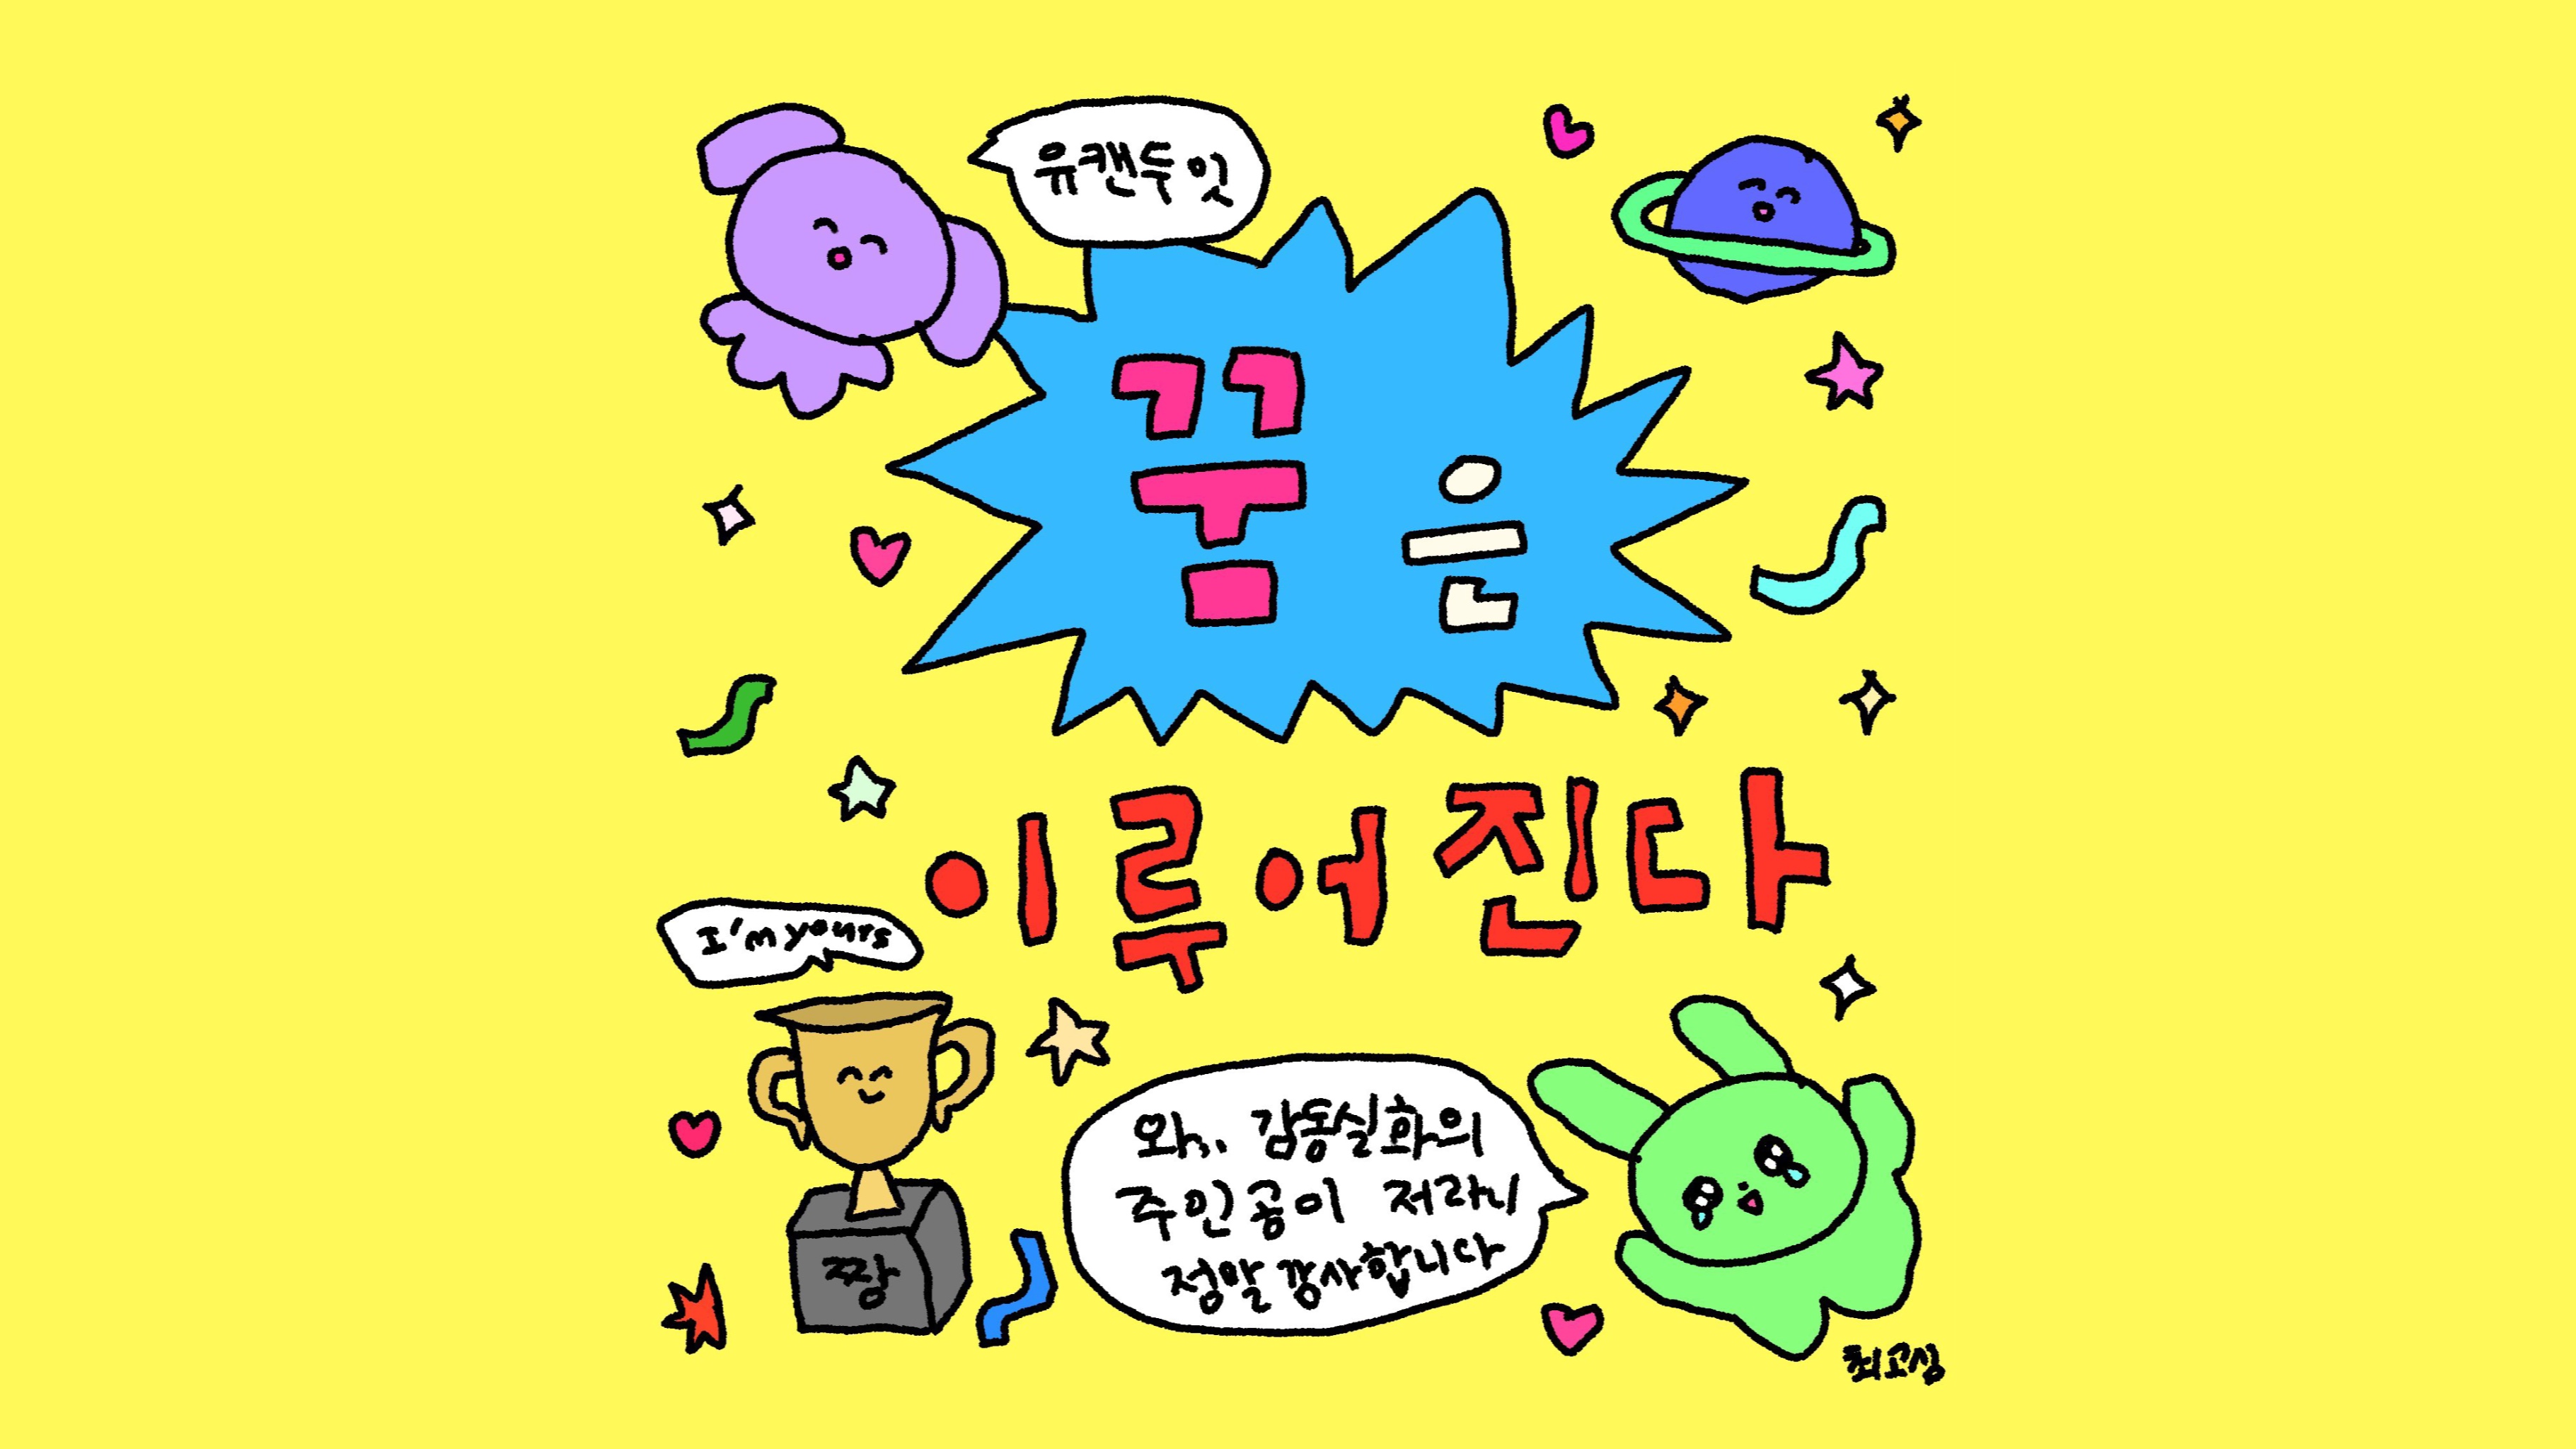 유캔두잇
꿈은
이루어진다
I'm yours
와.. 감동실화의
주인공이 저라니
정말 깜사합니다
짱
최고심